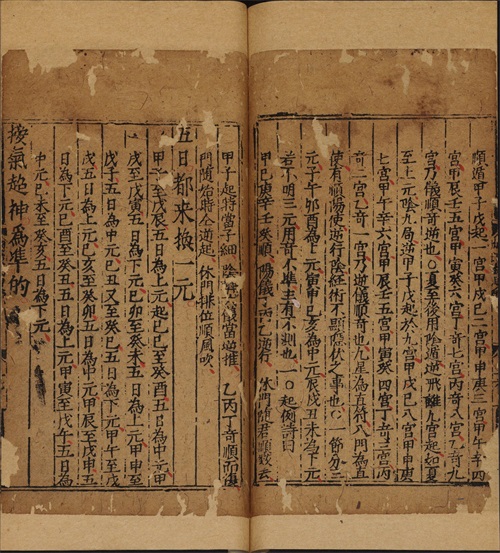 順遁甲子戊起一宮甲戌己二宮甲申庚三宮甲午辛四
宮甲辰壬五宮甲寅癸六宮丁奇七宮丙奇八宮乙奇九
宮乃儀順奇逆也〇夏至後用陰遁逆飛離九宮起如夏
至上元陰九局逆甲子戊起於九宮甲戌己八宮甲申庚
七宮甲午辛六宮甲辰壬五宮甲寅癸四宮丁奇三宮丙
奇二宮乙奇一宮乃逆儀順奇也九星為直符八門為直
使有順陽使逆行陰經術不顯隱伏之事也〇一節分三
元子午卯酉為上元寅申巳亥為中元辰戌丑未為下元
若不明三元用奇不準主有不測也一〇起例詩曰
甲己庚辛壬癸順陽儀丁丙乙逆行休門隨君順數去
甲子起時當子細陰儀當逆推乙丙丁奇順而
門隨始時令逆起休門排位順風吹
五日都來換一元
甲子至戊辰五日為上元己巳至癸酉五日為中元甲
戌至戊寅五日為下元己卯至癸未五日為上元甲申至
戊子五日為中元己丑又至癸巳五日為下元甲午至戊
戌五日為上元己亥至癸卯五日為中元甲辰至戊申五
日為下元己酉至癸丑五日為上元甲寅至戊午五日為
中元己未至癸亥五日為下元
接氣超神為準的